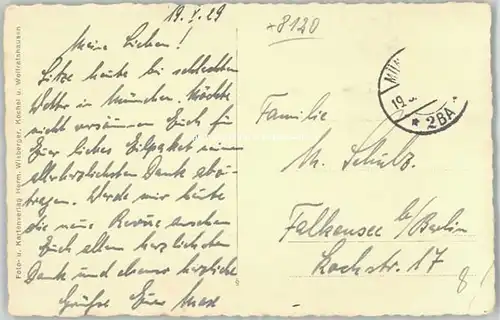 19. V. 29
Meine Lieben!
Sitze heute bei schlechtem
Wetter in München. Möchte
nicht versäumen Euch für
Euer liebes Eilpaket meinen
allerherzlichsten Dank abzu-
tragen. Werde mir heute
die neue Revue ansehen
Euch allen herzlichsten
Dank und ebenso herzliche
Grüße Euer Max
*8120
MÜN
19.
* 2BA
Familie
M. Schulz.
Falkensee b/Berlin
Kochstr. 17
8
Foto- u. Kartenverlag Herm. Wisberger, Kochel u. Wolfratshausen